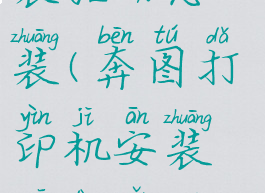 zhuāng bēn tú dǎ
装(奔图打
yìn jī ān zhuāng
印机安装